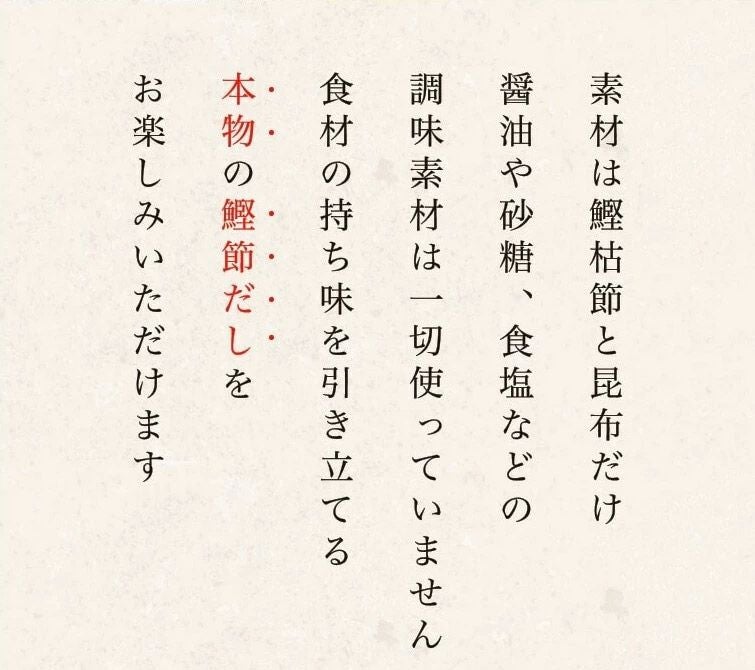 素材は鰹枯節と昆布だけ
醤油や砂糖、食塩などの
調味素材は一切使っていません
食材の持ち味を引き立てる
本物の鰹節だしを
お楽しみいただけます